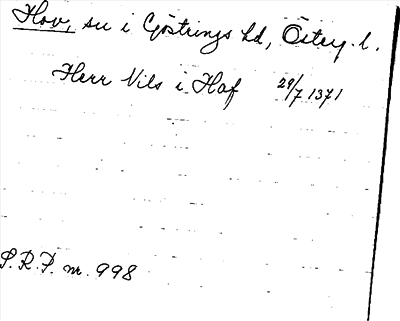 Hov, sn i Göstrings hd, Österg. l.
Herr Nils i Haf 29/7 1371
S.R.P. nr. 998